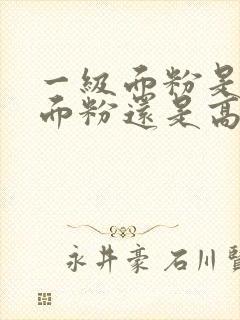 一級而粉是
而粉還是高
永井豪 石川賢